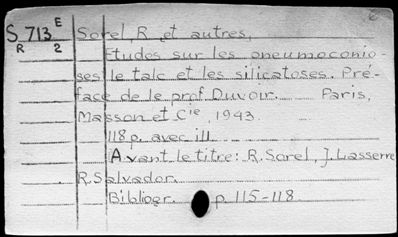 S 713 E Sorel, R. et autres.
R 2 Etudes sur les pneumoconio-
ses le talc et les silicatoses. Pré-
face de le prof. Duvoir. Paris,
Masson et Cie, 1943.
118 p. avec ill.
Avant le titre: R. Sorel, J. Lasserre
R. Salvador.
Bibliogr. p. 115-118.